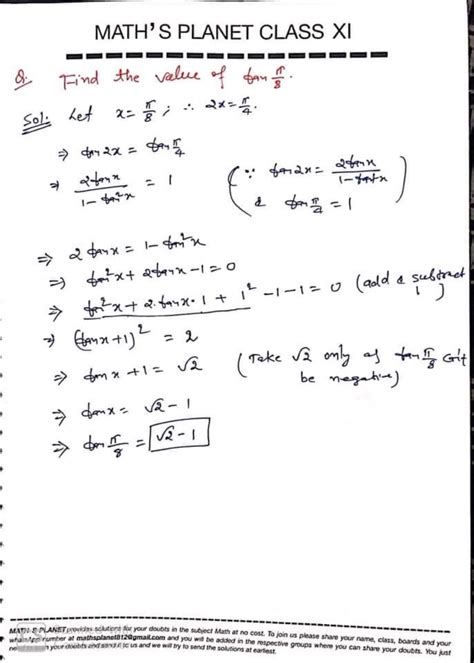 MATH'S PLANET CLASS XI
Q: Find the value of tan π/8.
Sol: Let x = π/8 ; ∴ 2x = π/4.
⇒ tan 2x = tan π/4
⇒ 2tanx / 1 - tan²x = 1 ( ∵ tan 2x = 2tanx / 1 - tan²x & tan π/4 = 1 )
⇒ 2 tanx = 1 - tan²x
⇒ tan²x + 2tanx - 1 = 0
⇒ tan²x + 2.tanx.1 + 1² - 1 - 1 = 0 (add & subtract 1)
⇒ (tanx + 1)² = 2
⇒ tanx + 1 = √2 (Take √2 only as tan π/8 be negative)
⇒ tanx = √2 - 1
⇒ tan π/8 = √2 - 1
MATH-S-PLANET provides solutions for your doubts in the subject Math at no cost. To join us please share your name, class, boards and your
whatsApp number at mathsplanet812@gmail.com and you will be added in the respective groups where you can share your doubts. You just
your doubts and send it to us and we will try to send the solutions at earliest.